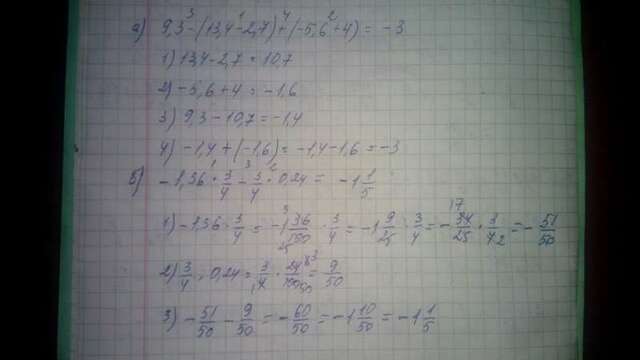 а) 9,3 - (13,4 - 2,7) + (-5,6 + 4) = -3
1) 13,4 - 2,7 = 10,7
2) -5,6 + 4 = -1,6
3) 9,3 - 10,7 = -1,4
4) -1,4 + (-1,6) = -1,4 - 1,6 = -3
б) -1,36 · 3/4 - 3/4 · 0,24 = -1 1/5
1) -1,36 · 3/4 = -1 36/100 · 3/4 = -1 9/25 · 3/4 = -34/25 · 3/4 = -51/50
2) 3/4 · 0,24 = 3/4 · 24/100 = 9/50
3) -51/50 - 9/50 = -60/50 = -1 10/50 = -1 1/5